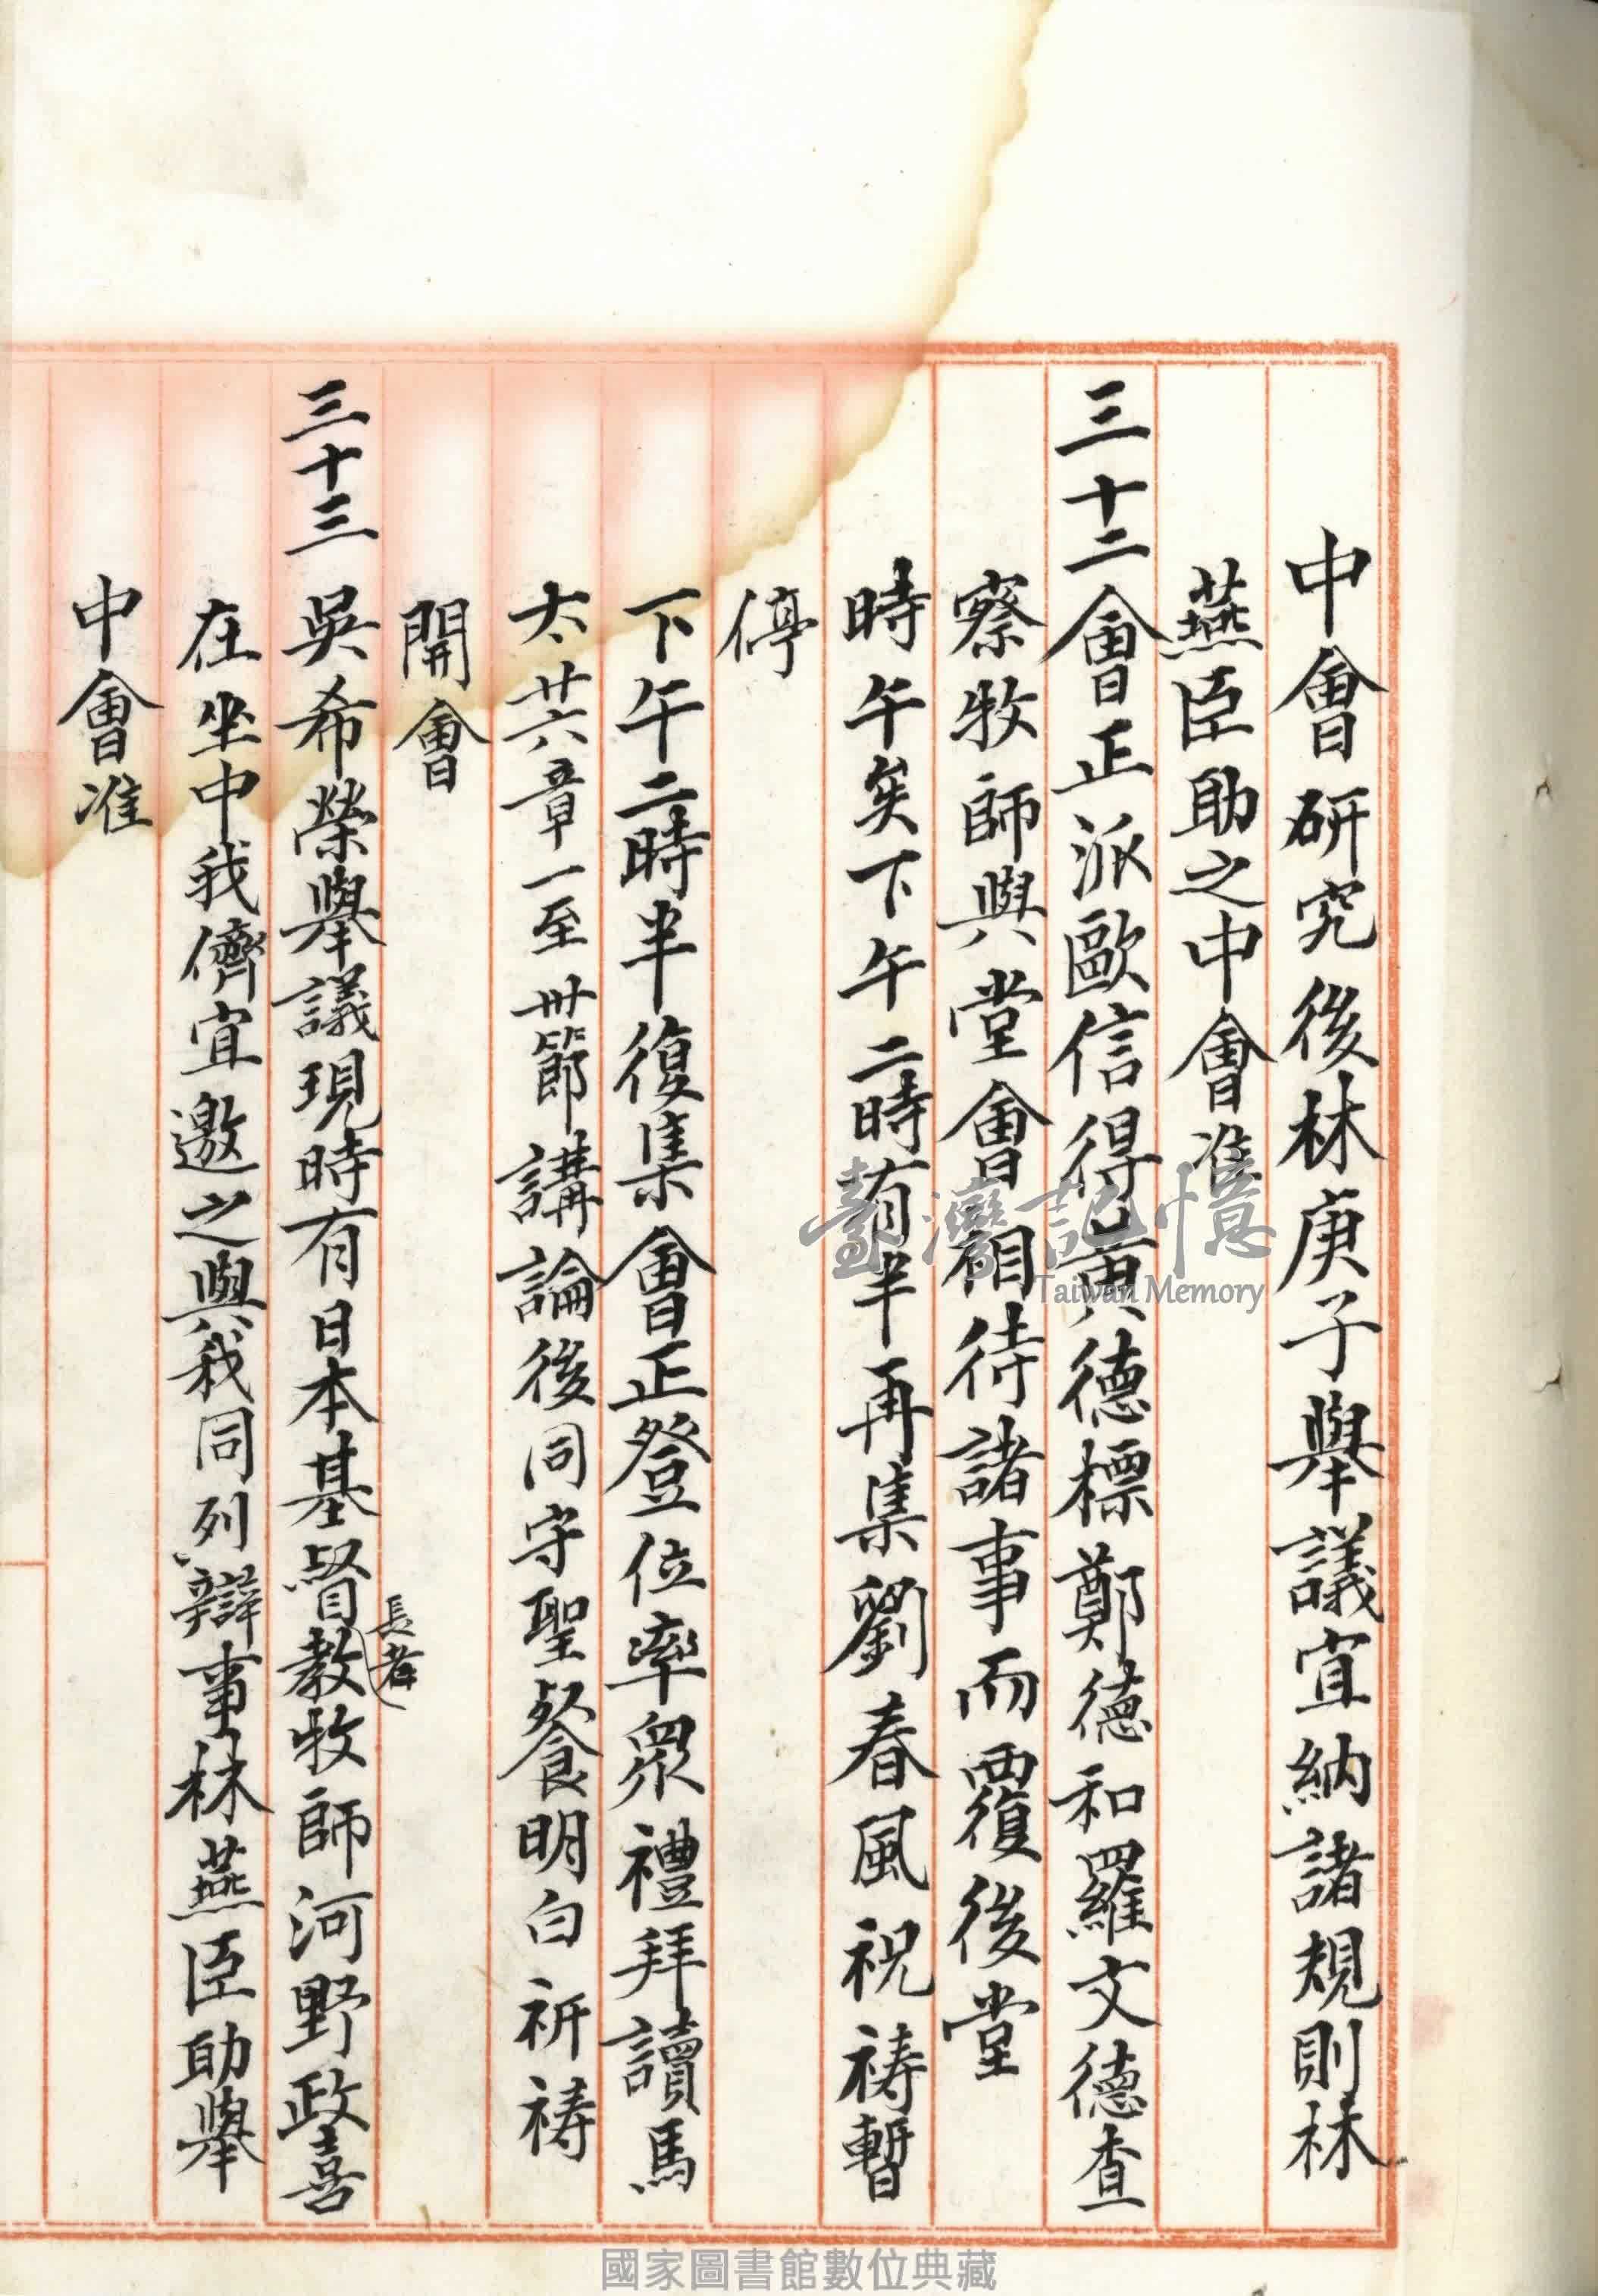 中會研究後林庚子舉議宜納諸規則林
燕臣助之中會准
三十二會正派歐信得黃德標鄭德和羅文德查
察牧師與堂會相待諸事而覆後堂
時午矣下午二時有半再集劉春風祝禱暫
停
下午二時半復集會正登位率眾禮拜讀馬
太廿六章一至卅節講論後同守聖餐明白祈禱
開會
長老
三十三吳希榮舉議現時有日本基督教牧師河野政喜
在坐中我儕宜邀之與我同列辯事林燕臣助舉
中會准
臺灣記憶
Taiwan Memory
國家圖書館數位典藏